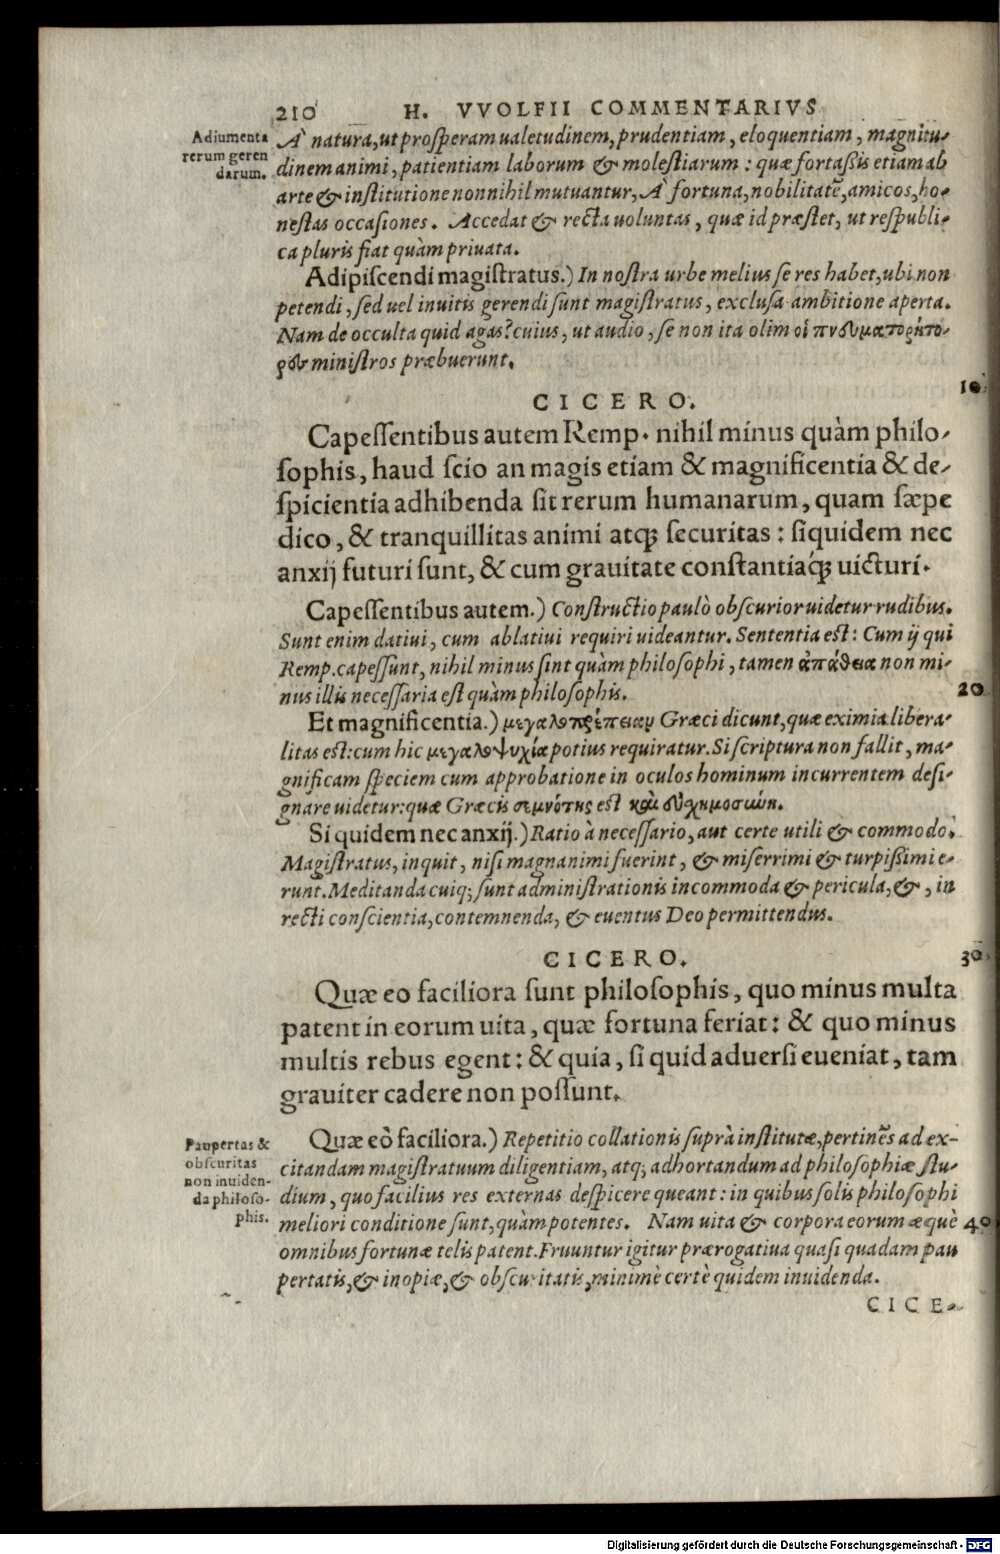 210 H. VVOLFII COMMENTARIVS
Adiumenta
rerum geren
darum.
À natura, ut proſperam ualetudinem, prudentiam, eloquentiam, magnitu-
dinem animi, patientiam laborum & moleſtiarum: quæ fortaßis etiam ab
arte & inſtitutione nonnihil mutuantur, À fortuna, nobilitatẽ, amicos, ho-
neſtas occaſiones. Accedat & recta uoluntas, quæ id præſtet, ut reſpubli-
ca pluris fiat quàm priuata.
Adipiſcendi magiſtratus.) In noſtra urbe melius ſe res habet, ubi non
petendi, ſed uel inuitis gerendi ſunt magiſtratus, excluſa ambitione aperta.
Nam de occulta quid agas? cuius, ut audio, ſe non ita olim οἱ πνευματοῤῥήτο-
ρες miniſtros præbuerunt.
10
CICERO.
Capeſſentibus autem Remp. nihil minus quàm philo-
ſophis, haud ſcio an magis etiam & magnificentia & de-
ſpicientia adhibenda ſit rerum humanarum, quam ſæpe
dico, & tranquillitas animi atq; ſecuritas: ſiquidem nec
anxij futuri ſunt, & cum grauitate conſtantiaq́; uicturi.
Capeſſentibus autem.) Conſtructio paulò obſcurior uidetur rudibus.
Sunt enim datiui, cum ablatiui requiri uideantur. Sententia eſt: Cum ij qui
Remp. capeſſunt, nihil minus ſint quàm philoſophi, tamen ἀπάθεια non mi-
nus illis neceſſaria eſt quàm philoſophis.
20
Et magnificentia.) μεγαλοπρέπειαν Græci dicunt, quæ eximia libera-
litas eſt: cum hic μεγαλοψυχία potius requiratur. Si ſcriptura non fallit, ma-
gnificam ſpeciem cum approbatione in oculos hominum incurrentem deſi-
gnare uidetur: quæ Græcis σεμνότης eſt καὶ εὐσχημοσύνη.
Si quidem nec anxij.) Ratio à neceſſario, aut certe utili & commodo.
Magiſtratus, inquit, niſi magnanimi fuerint, & miſerrimi & turpißimi e-
runt. Meditanda cuiq; ſunt adminiſtrationis incommoda & pericula, &, in
recti conſcientia, contemnenda, & euentus Deo permittendus.
CICERO.
30
Quæ eo faciliora ſunt philoſophis, quo minus multa
patent in eorum uita, quæ fortuna feriat: & quo minus
multis rebus egent: & quia, ſi quid aduerſi eueniat, tam
grauiter cadere non poſſunt.
Paupertas &
obſcuritas
non inuiden-
da philoſo-
phis.
Quæ eò faciliora.) Repetitio collationis ſuprà inſtitutæ, pertinẽs ad ex-
citandam magiſtratuum diligentiam, atq; adhortandum ad philoſophiæ ſtu-
dium, quo facilius res externas deſpicere queant: in quibus ſolis philoſophi
meliori conditione ſunt, quàm potentes. Nam uita & corpora eorum æquè
40
omnibus fortunæ telis patent. Fruuntur igitur prærogatiua quaſi quadam pau
pertatis, & inopiæ, & obſcuritatis, minimè certè quidem inuidenda.
CICE-
Digitalisierung gefördert durch die Deutsche Forschungsgemeinschaft - DFG